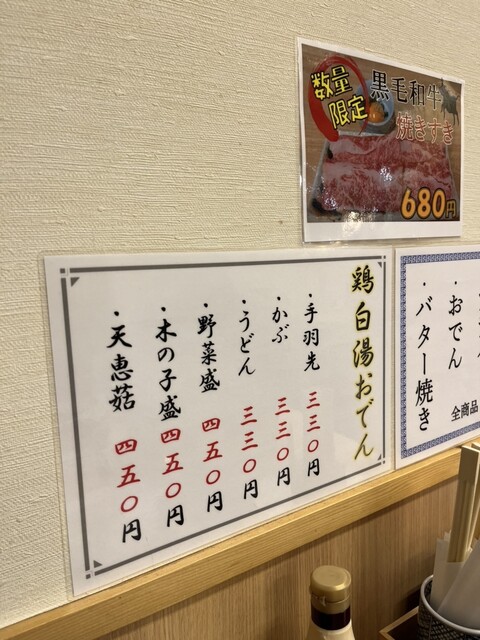 数量
限定
黒毛和牛
焼きすき
680円
鶏白湯おでん
・手羽先 三三〇円
・かぶ 三三〇円
・うどん 三三〇円
・野菜盛 四五〇円
・木の子盛 四五〇円
・天恵菇 四五〇円
・おでん
全商品
・バター焼き